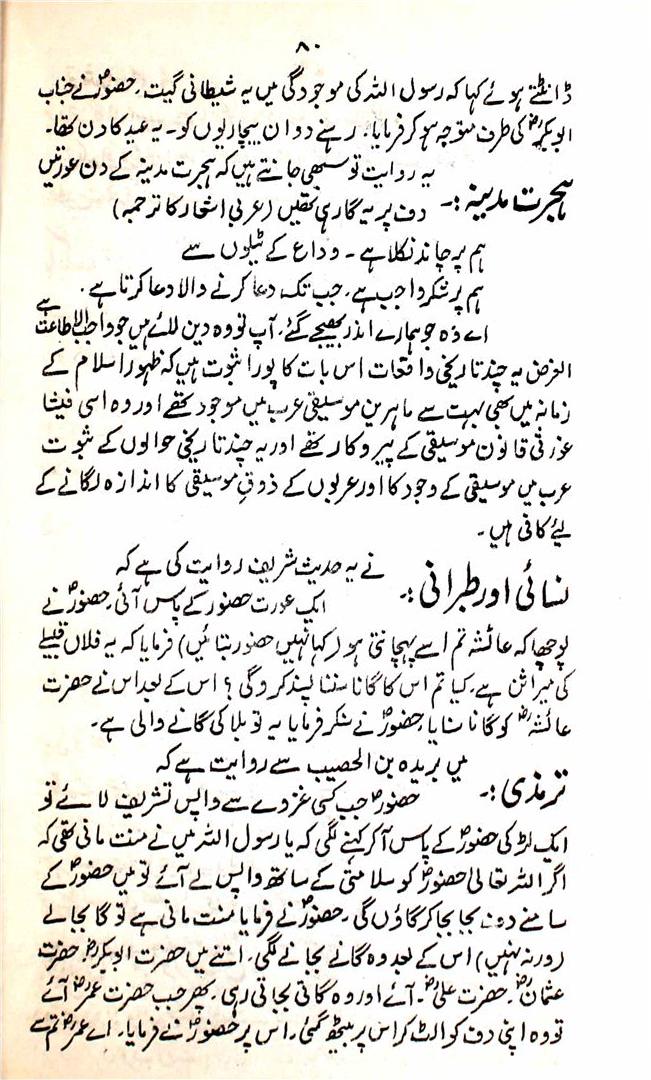 ۸۰
ڈانٹتے ہوئے کہا کہ رسول اللہ کی موجودگی میں یہ شیطانی گیت۔ حضورؐ نے جناب
ابوبکرؓ کی طرف متوجہ ہوکر فرمایا۔ رہنے دو ان بیچاریوں کو۔ یہ عید کا دن تھا۔
یہ روایت تو سبھی جانتے ہیں کہ ہجرت مدینہ کے دن عورتیں
ہجرت مدینہ :۔ دف پر یہ گا رہی تھیں (عربی اشعار کا ترجمہ)
ہم پر چاند نکلا ہے ۔ وداع کے ٹیلوں سے
ہم پر شکر واجب ہے۔ جب تک دعا کرنے والا دعا کرتا ہے۔
اے وہ جو ہمارے اندر بھیجے گئے۔ آپ تو وہ دین لائے ہیں جو واجب الاطاعت ہے
الغرض یہ چند تاریخی واقعات اس بات کا پورا ثبوت ہیں کہ ظہور اسلام کے
زمانہ میں بھی بہت سے ماہرین موسیقی عرب میں موجود تھے اور وہ اسی فیثا
غورثی قانون موسیقی کے پیروکار تھے اور یہ چند تاریخی حوالوں کے ثبوت
عرب میں موسیقی کے وجود کا اور عربوں کے ذوقِ موسیقی کا اندازہ لگانے کے
لیئے کافی ہیں۔
نے یہ حدیث شریف روایت کی ہے کہ
نسائی اور طبرانی :۔ ایک عورت حضور کے پاس آئی۔ حضورؐ نے
پوچھا کہ عائشہ تم اسے پہچانتی ہو (کہا نہیں حضور بتائیں) فرمایا کہ یہ فلاں قبیلے
کی میراثن ہے۔ کیا تم اس کا گانا سننا پسند کرو گی؟ اس کے بعد اس نے حضرت
عائشہؓ کو گانا سنایا۔ حضورؐ نے سنکر فرمایا یہ تو بلا کی گانے والی ہے۔
میں بریدہ بن الحصیب سے روایت ہے کہ
ترمذی :۔ حضورؐ جب کسی غزوے سے واپس تشریف لائے تو
ایک لڑکی حضورؐ کے پاس آکر کہنے لگی کہ یا رسول اللہ میں نے منت مانی تھی کہ
اگر اللہ تعالیٰ حضورؐ کو سلامتی کے ساتھ واپس لے آئے تو میں حضورؐ کے
سامنے دف بجا بجا کر گاؤں گی۔ حضورؐ نے فرمایا منت مانی ہے تو گا بجا لے
(ورنہ نہیں) اس کے بعد وہ گانے بجانے لگی۔ اتنے میں حضرت ابوبکرؓ۔ حضرت
عثمانؓ۔ حضرت علیؓ۔ آئے اور وہ گاتی بجاتی رہی۔ پھر جب حضرت عمرؓ آئے
تو وہ اپنی دف کو الٹ کر اس پر بیٹھ گئی۔ اس پر حضورؐ نے فرمایا۔ اے عمرؓ تم سے